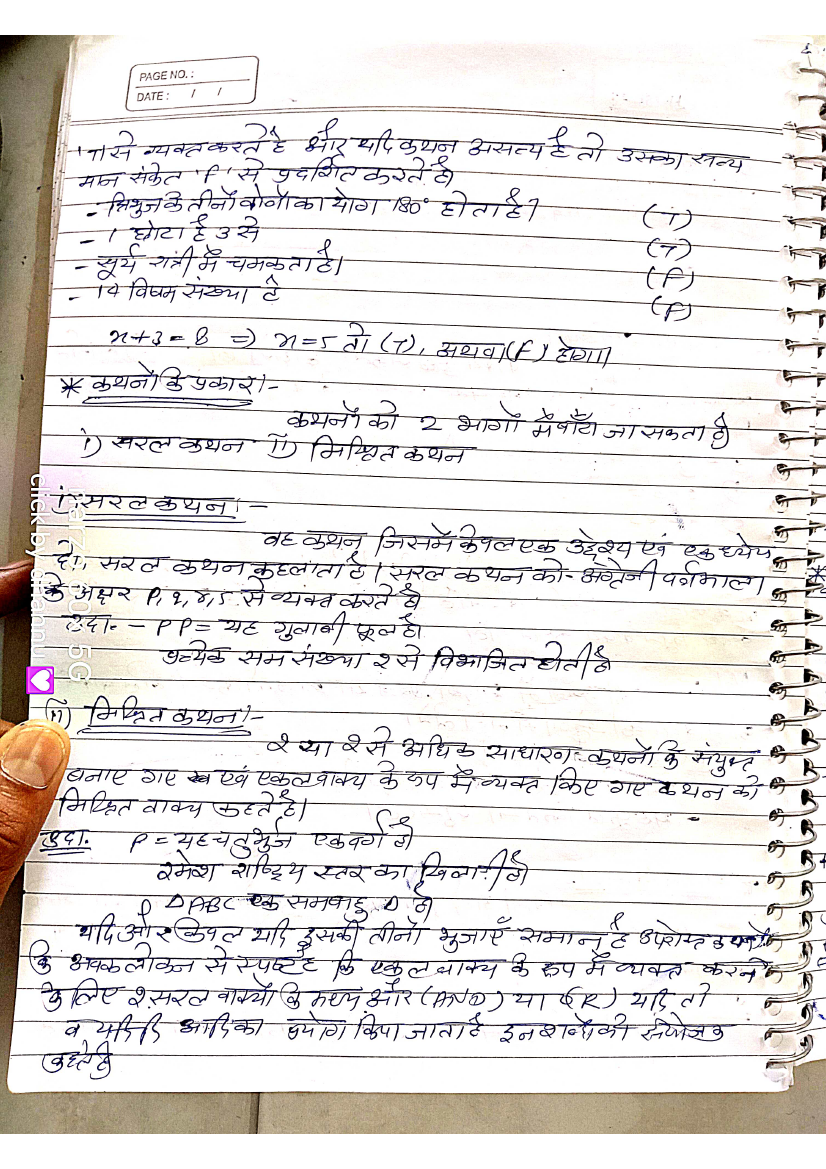 PAGE NO. :
DATE : / /
'T' से व्यक्त करते है और यदि कथन असत्य है तो उसका सत्य
मान संकेत 'F' से प्रदर्शित करते है।
- त्रिभुज के तीनों कोणों का योग 180° होता है। (T)
- 1 छोटा है 3 से (T)
- सूर्य रात्री में चमकता है। (F)
- 14 विषम संख्या है (F)
x+3 = 8 => x=5 तो (T), अथवा (F) होगा।
* कथनों के प्रकार :-
कथनों को 2 भागों में बाँटा जा सकता है
i) सरल कथन ii) मिश्रित कथन
i) सरल कथन :-
वह कथन जिसमें केवल एक उद्देश्य एवं एक ध्येय
हो, सरल कथन कहलाता है। सरल कथन को अंग्रेजी वर्णमाला
के अक्षर P, q, r, s से व्यक्त करते है।
उदा. - P P = यह गुलाबी फूल है।
प्रत्येक सम संख्या 2 से विभाजित होती है
(ii) मिश्रित कथन :-
2 या 2 से अधिक साधारण कथनों के संयुक्त
बनाए गए एवं एकल वाक्य के रूप में व्यक्त किए गए कथन को
मिश्रित वाक्य कहते है।
उदा. P = यह चतुर्भुज एक वर्ग है।
रमेश राष्ट्रिय स्तर का खिलाड़ी है।
Δ ABC एक समबाहु Δ है।
यदि और केवल यदि इसकी तीनों भुजाएँ समान है उपरोक्त कथनों
के अवकलोकन से स्पष्ट है कि एकल वाक्य के रूप में व्यक्त करने
के लिए 2 सरल वाक्यों के मध्य और (AND) या (OR) यदि तो
व यदि आदि का उपयोग किया जाता है इन शब्दों को संयोजक
कहते है
click by shabnur
5G